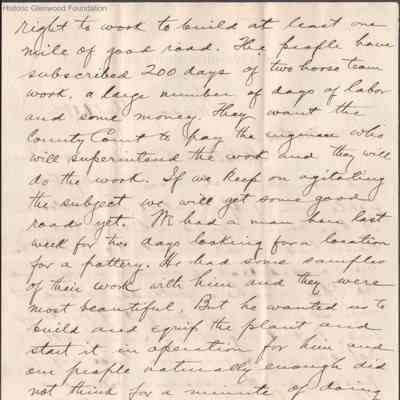 Historic Glenwood Foundation
right to work to build at least one
mile of good road. The people have
subscribed 200 days of two horse team
work, a large number of days of labor
and some money. They want the
County Court to pay the engineer who
will superintend the work and they will
do the work. If we keep on agitating
the subject we will get some good
roads yet. We had a man here last
week for two days looking for a location
for a pottery. He had some samples
of their work with him and they were
most beautiful. But he wanted us to
build and equip the plant and
start it in operation for him and
our people naturally enough did
not think for a minute of doing